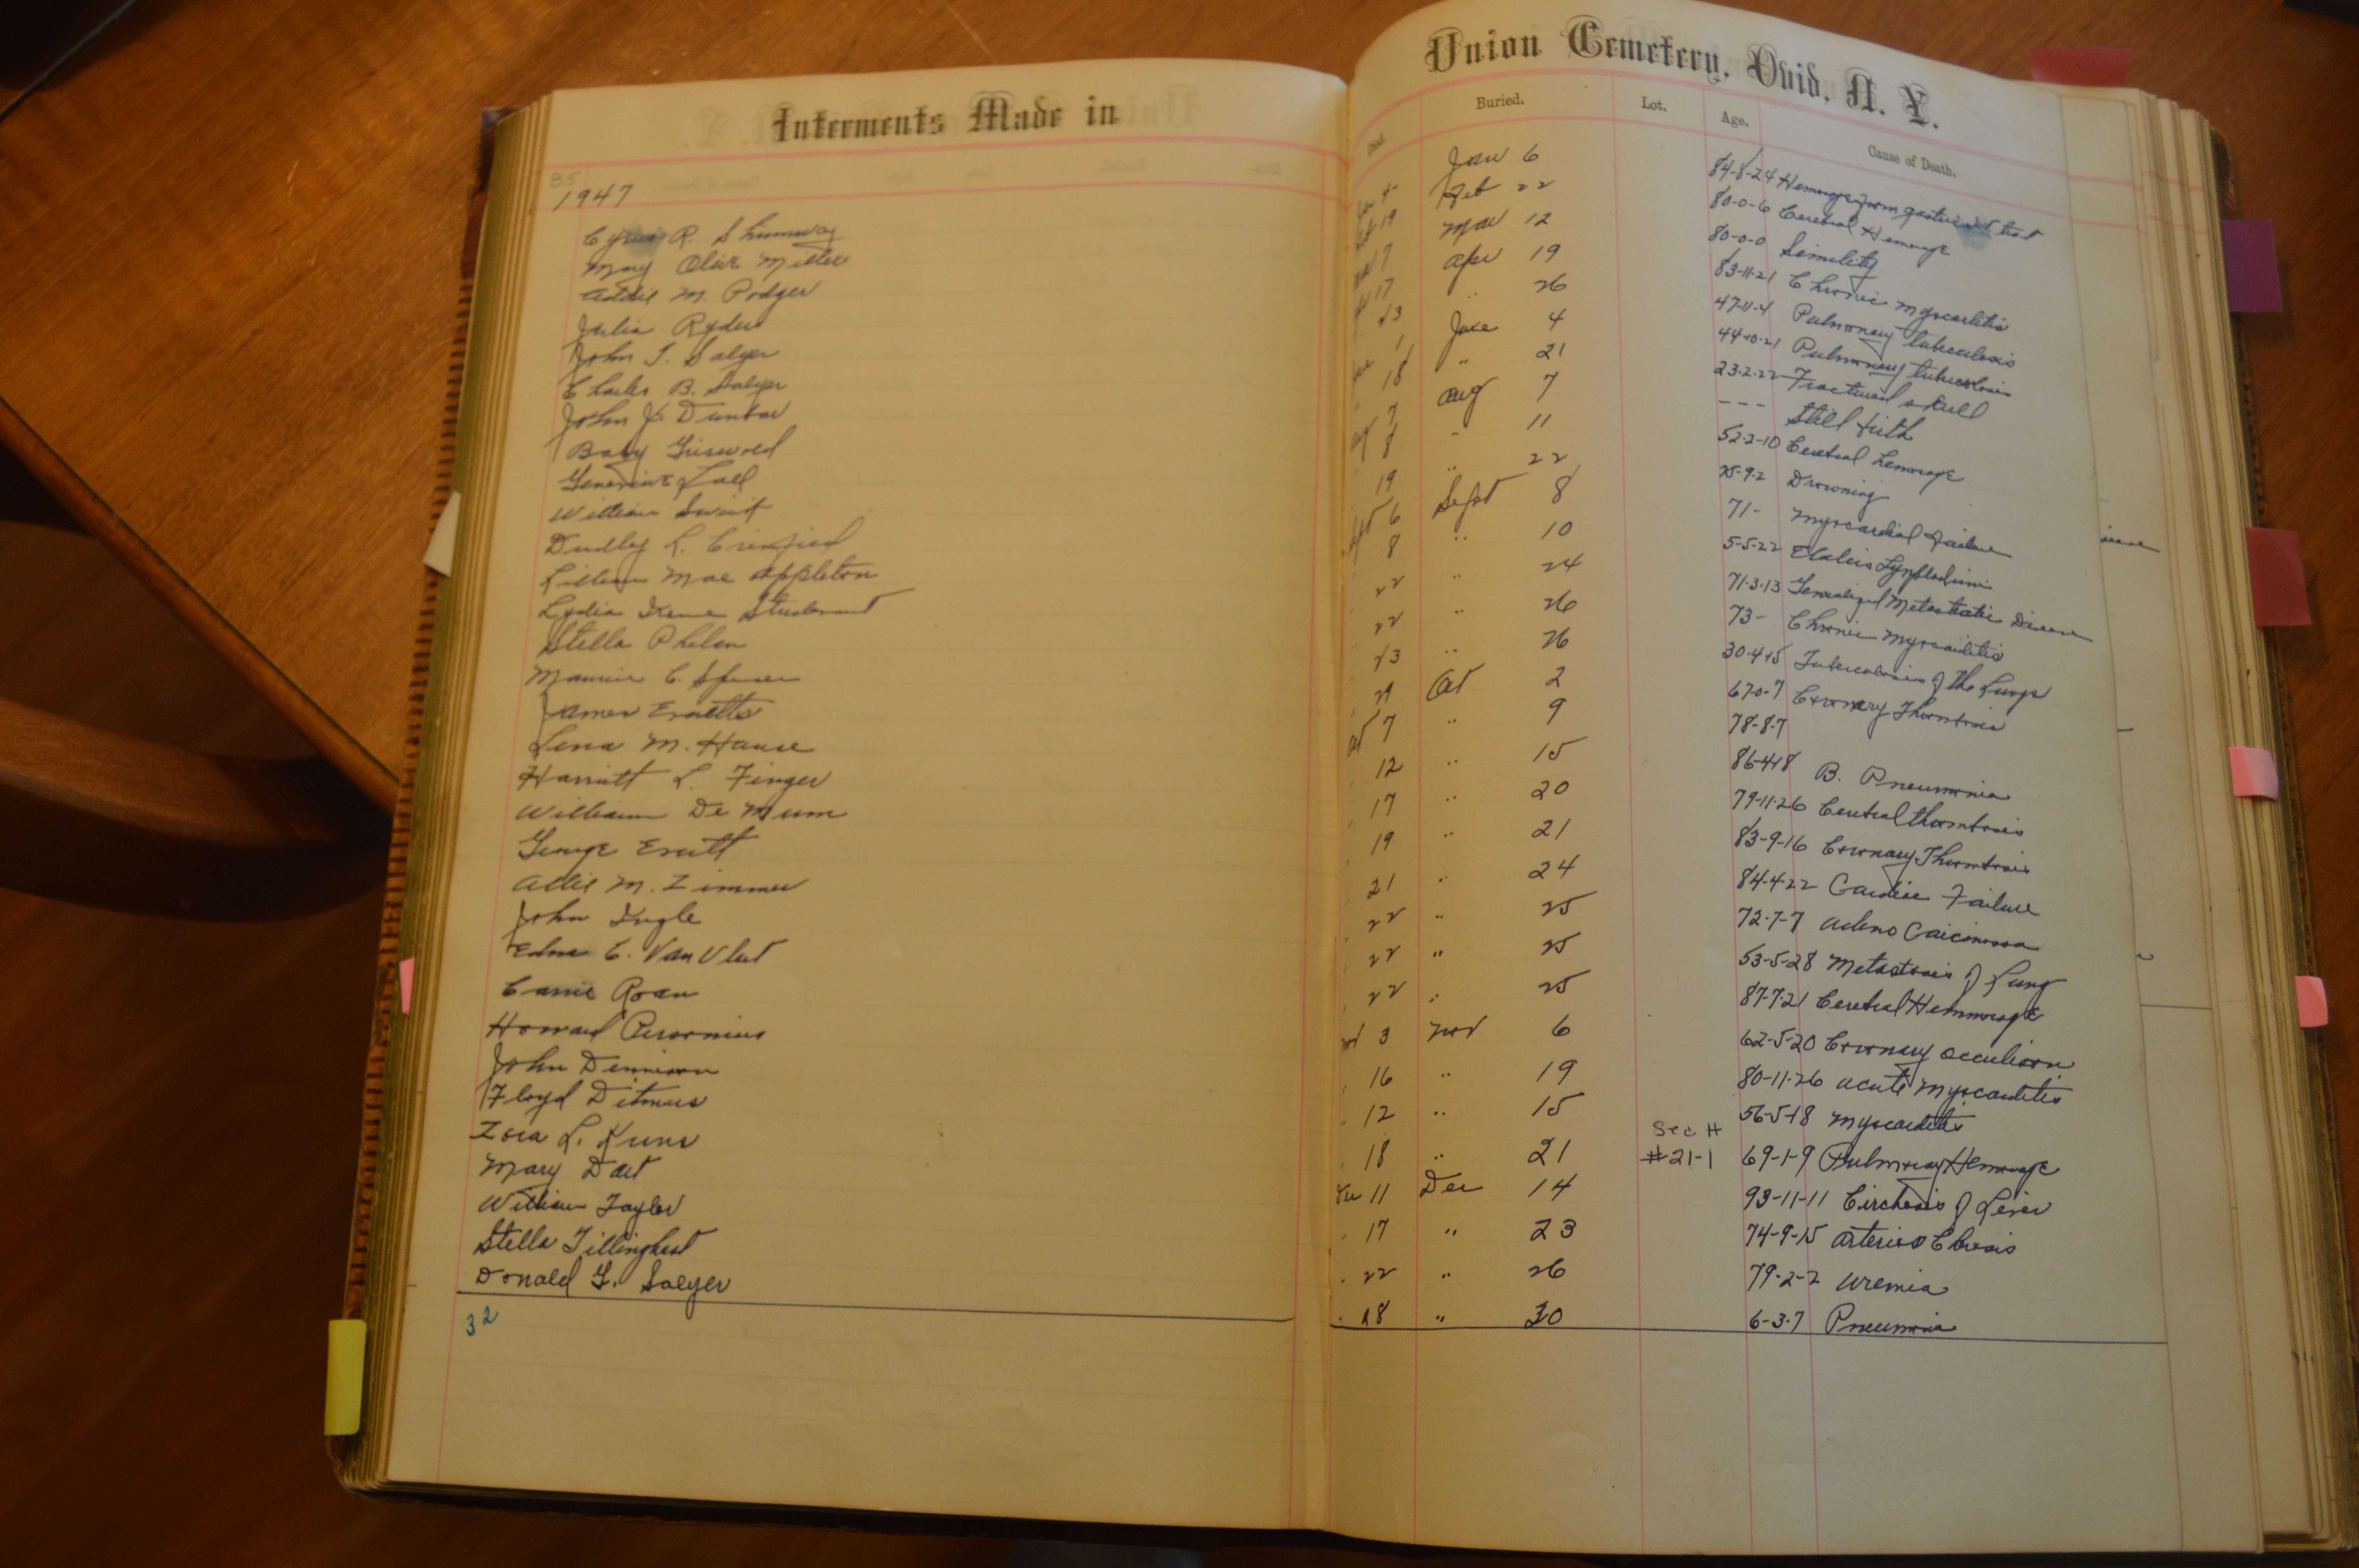 Interments Made in
Union Cemetery, Ovid, N. Y.
Died. Buried. Lot. Age. Cause of Death.
35
1947
Cyrus R. Shumway Jan 4 Jan 6 84-8-24
Mary Olive Miller Feb 19 Feb 22 80-0-6 Cerebral Hemorage
Addie M. Podger Mar 7 Mar 12 80-0-0 Senility
Julia Ryder 17 Apr 19 83-11-21 Chronic Myocarditis
John J. Salyer 23 " 26 47-11-4 Pulmonary tuberculosis
Charles B. Salyer June 1 June 4 44-10-21 Pulmonary tuberculosis
John J. Dunbar " 18 " 21 23-2-22 Fractured skull
Baby Griswold Aug 7 Aug 7 --- Still birth
Genevieve Lall 8 " 11 52-2-10 Cerebral hemorage
William Swint 19 " 22 25-9-2 Drowning
Dudley L. Sept 6 Sept 8 71- Myocardial failure
Lillian Mae Appleton 8 " 10 5-5-22
Lydia Irene 22 " 24 71-3-13 Generalized Metastatic Disease
Stella Phelan 22 " 26 73- Chronic Myocarditis
Maurice C. 23 " 26 30-4-15 Tuberculosis of the Lungs
James Evaetts 29 Oct 2 67-0-7 Coronary Thombosis
Lena M. Hause Oct 7 " 9 78-8-7
Harriett L. Finger 12 " 15 86-4-18 B. Pneumonia
William De Mum 17 " 20 79-11-26 Cerebral thombosis
George Evett 19 " 21 83-9-16 Coronary Thombosis
Allie M. Zimmer 21 " 24 84-4-22 Cardiac Failure
John Ingle 22 " 25 72-7-7 Adeno Carcinoma
Edna C. Van Vleet 22 " 25 53-5-28 Metastasis of Lung
Carrie Roan 22 " 25 87-7-21 Cerebral Hemmorage
Howard Nov 3 Nov 6 62-5-20 Coronary occulison
John Dennison 16 " 19 80-11-26 acute Myocarditis
Floyd Ditmars 12 " 15 56-5-18 Myocarditis
Sec H
Zora L. Kuns 18 " 21 #21-1 69-1-9 Pulmonay Hemorage
Mary Dart Dec 11 Dec 14 93-11-11 Cirhosis of Liver
William Taylor 17 " 23 74-9-15
Stella Tillinghast 22 " 26 79-2-2 Uremia
Donald G. Salyer 28 " 30 6-3-7 Pneumonia
32